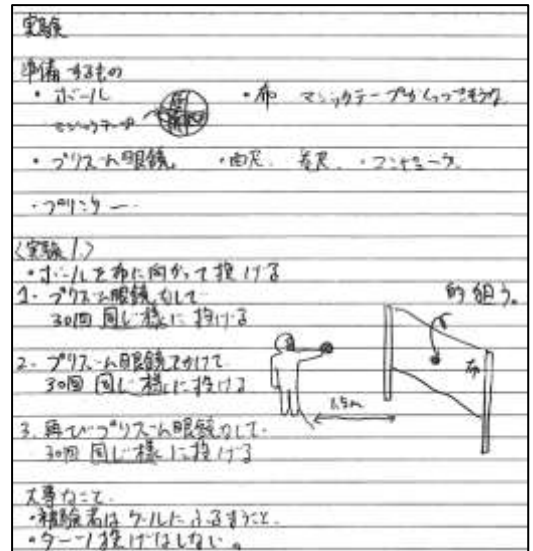 実験
準備するもの
・ボール ・布 マジックテープがくっつきそうな
マジックテープ
・プリズム眼鏡 ・曲尺、巻尺、・コンピュータ
・プリンター
〈実験1.〉
・ボールを布に向かって投げる
1. プリズム眼鏡なして
30回 同じ様に投げる
的 狙う。
2. プリズム眼鏡をかけて
30回 同じ様に投げる
布
1.5m
3. 再びプリズム眼鏡なして
30回 同じ様に投げる
大事なこと
・被験者はクールにふるまうこと。
・ターン投げはしない。